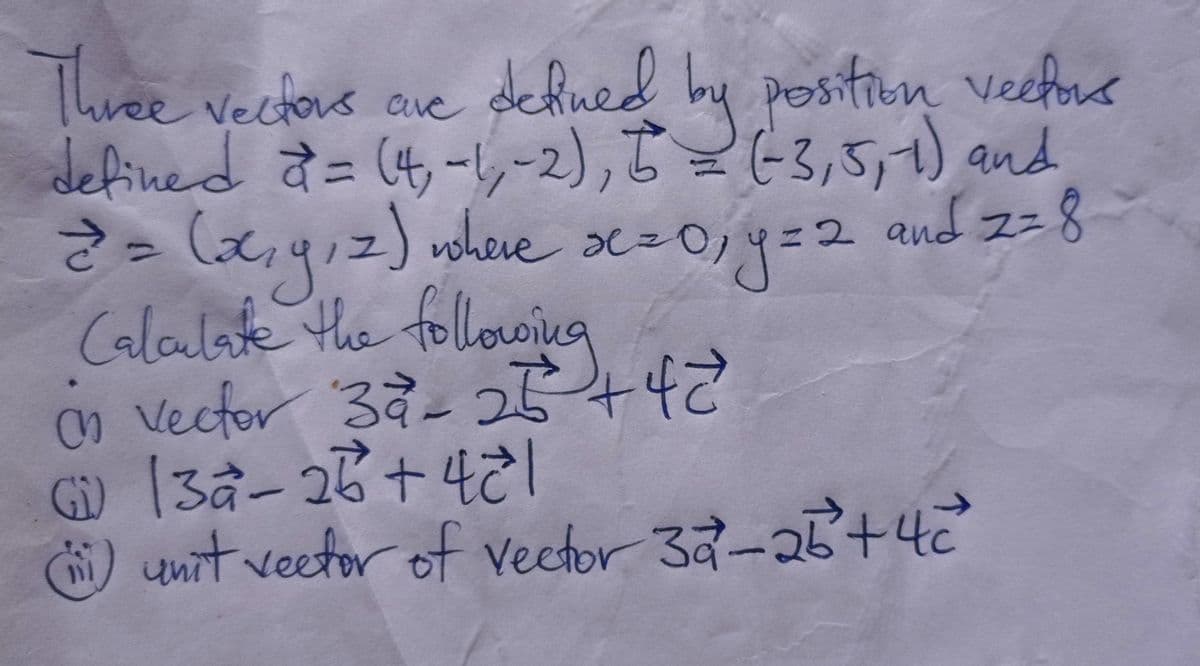 Three vectors are defined by position vectors
defined a⃗ = (4, -1, -2), b⃗ = (-3, 5, -1) and
c⃗ = (x, y, z) where x = 0, y = 2 and z = 8
Calculate the following
(i) vector 3a⃗ - 2b⃗ + 4c⃗
(ii) |3a⃗ - 2b⃗ + 4c⃗|
(iii) unit vector of vector 3a⃗ - 2b⃗ + 4c⃗